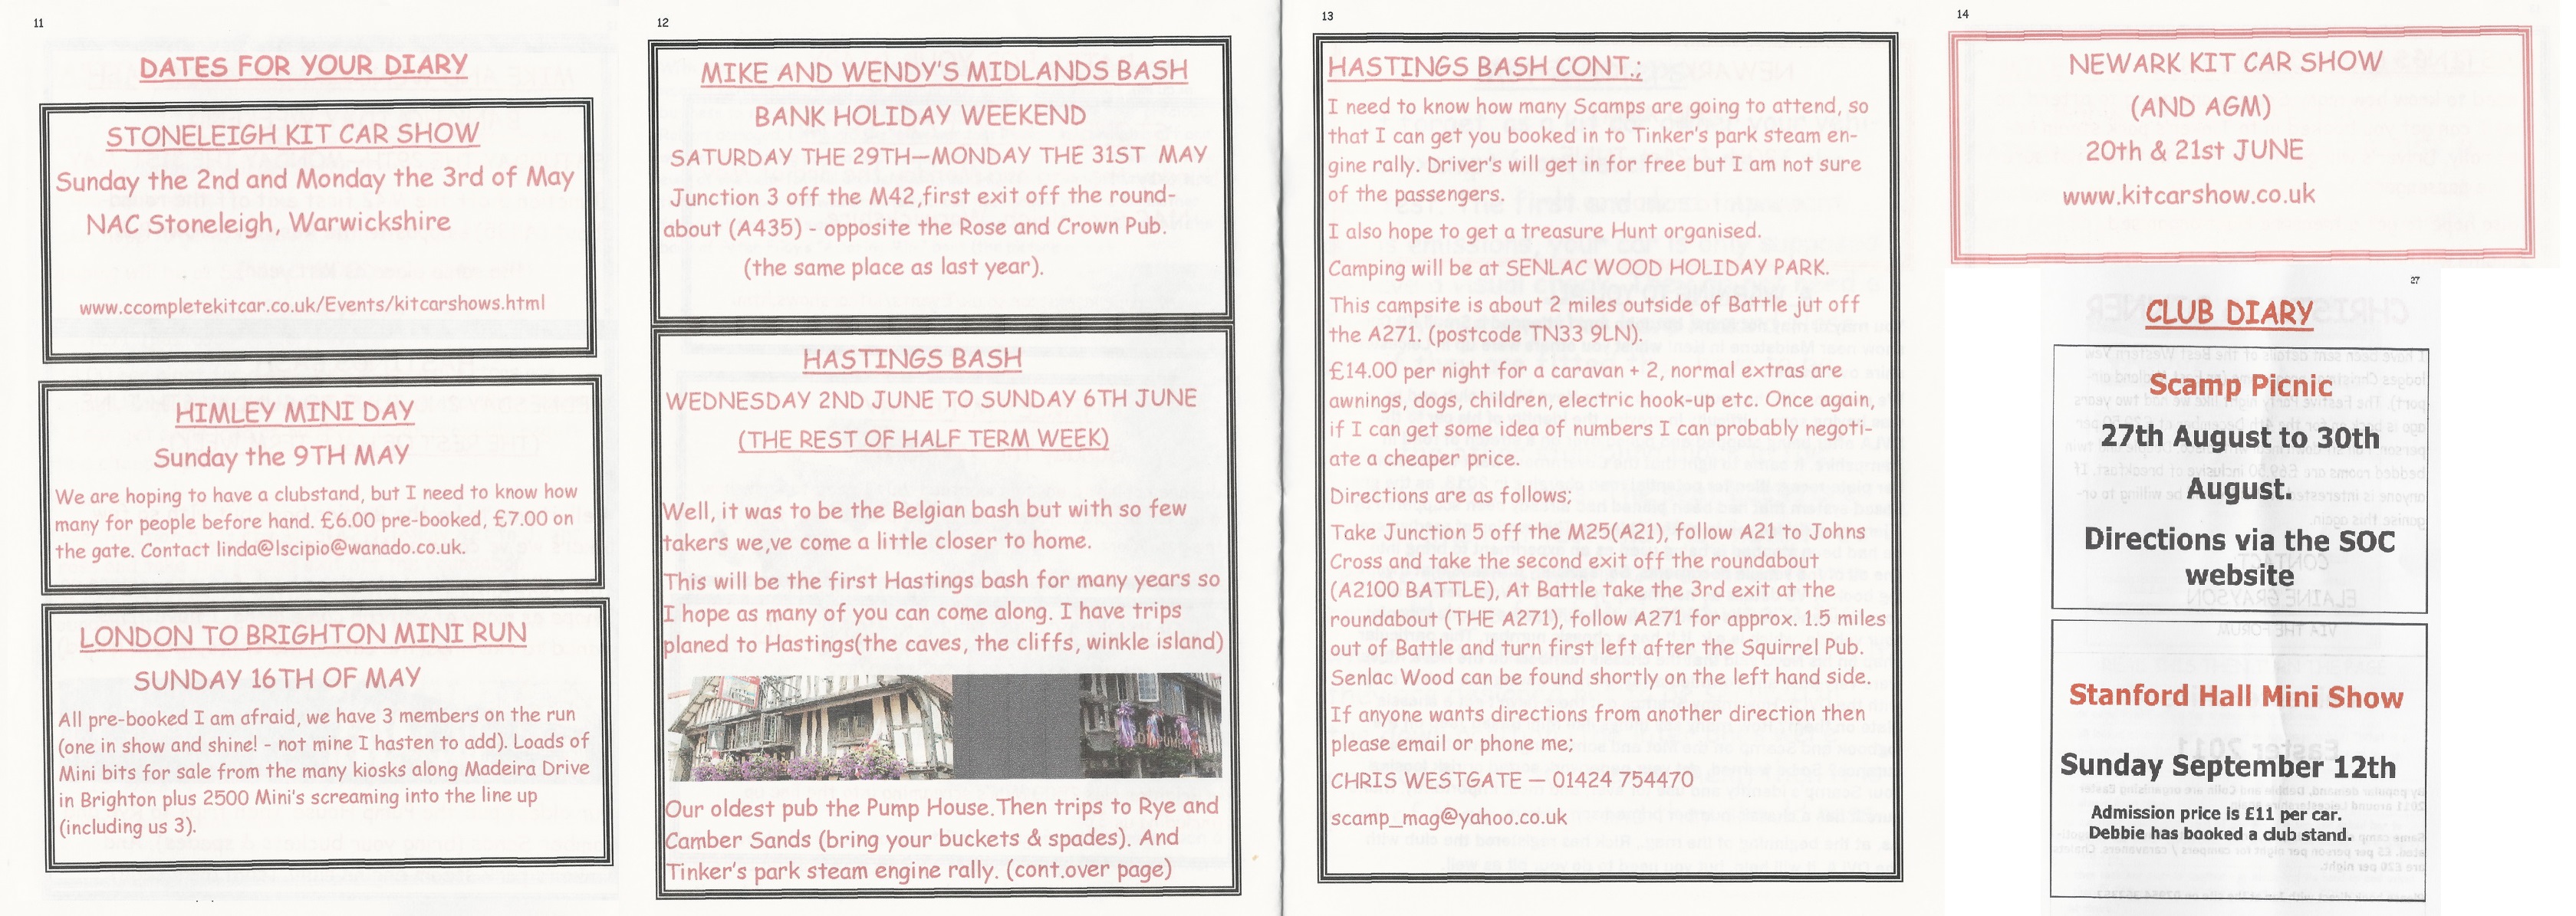 11
DATES FOR YOUR DIARY
STONELEIGH KIT CAR SHOW
Sunday the 2nd and Monday the 3rd of May
NAC Stoneleigh, Warwickshire
www.ccompletekitcar.co.uk/Events/kitcarshows.html
HIMLEY MINI DAY
Sunday the 9TH MAY
We are hoping to have a clubstand, but I need to know how
many for people before hand. £6.00 pre-booked, £7.00 on
the gate. Contact linda@lscipio@wanado.co.uk.
LONDON TO BRIGHTON MINI RUN
SUNDAY 16TH OF MAY
All pre-booked I am afraid, we have 3 members on the run
(one in show and shine! - not mine I hasten to add). Loads of
Mini bits for sale from the many kiosks along Madeira Drive
in Brighton plus 2500 Mini's screaming into the line up
(including us 3).
12
MIKE AND WENDY'S MIDLANDS BASH
BANK HOLIDAY WEEKEND
SATURDAY THE 29TH—MONDAY THE 31ST MAY
Junction 3 off the M42,first exit off the round-
about (A435) - opposite the Rose and Crown Pub.
(the same place as last year).
HASTINGS BASH
WEDNESDAY 2ND JUNE TO SUNDAY 6TH JUNE
(THE REST OF HALF TERM WEEK)
Well, it was to be the Belgian bash but with so few
takers we,ve come a little closer to home.
This will be the first Hastings bash for many years so
I hope as many of you can come along. I have trips
planed to Hastings(the caves, the cliffs, winkle island)
Our oldest pub the Pump House.Then trips to Rye and
Camber Sands (bring your buckets & spades). And
Tinker's park steam engine rally. (cont.over page)
13
HASTINGS BASH CONT.;
I need to know how many Scamps are going to attend, so
that I can get you booked in to Tinker's park steam en-
gine rally. Driver's will get in for free but I am not sure
of the passengers.
I also hope to get a treasure Hunt organised.
Camping will be at SENLAC WOOD HOLIDAY PARK.
This campsite is about 2 miles outside of Battle jut off
the A271. (postcode TN33 9LN).
£14.00 per night for a caravan + 2, normal extras are
awnings, dogs, children, electric hook-up etc. Once again,
if I can get some idea of numbers I can probably negoti-
ate a cheaper price.
Directions are as follows;
Take Junction 5 off the M25(A21), follow A21 to Johns
Cross and take the second exit off the roundabout
(A2100 BATTLE), At Battle take the 3rd exit at the
roundabout (THE A271), follow A271 for approx. 1.5 miles
out of Battle and turn first left after the Squirrel Pub.
Senlac Wood can be found shortly on the left hand side.
If anyone wants directions from another direction then
please email or phone me;
CHRIS WESTGATE — 01424 754470
scamp_mag@yahoo.co.uk
14
NEWARK KIT CAR SHOW
(AND AGM)
20th & 21st JUNE
www.kitcarshow.co.uk
27
CLUB DIARY
Scamp Picnic
27th August to 30th
August.
Directions via the SOC
website
Stanford Hall Mini Show
Sunday September 12th
Admission price is £11 per car.
Debbie has booked a club stand.